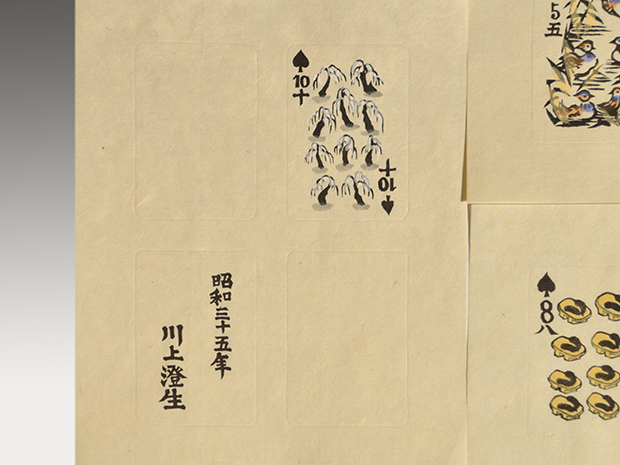 10
十
10
十
5
五
8
八
昭和三十五年
川上澄生